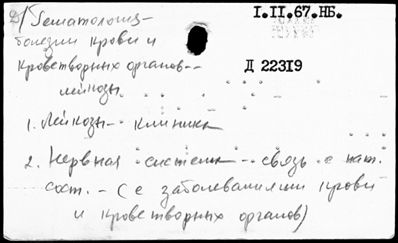 Д/ Гематология-
болезни крови и
кроветворных органов--
лейкозы
I.II.67.НБ.
Д 22319
1. Лейкозы-- клиника
2. Нервная система -- связь с пат.
сост. - (с заболеваниями крови
и кроветворных органов)